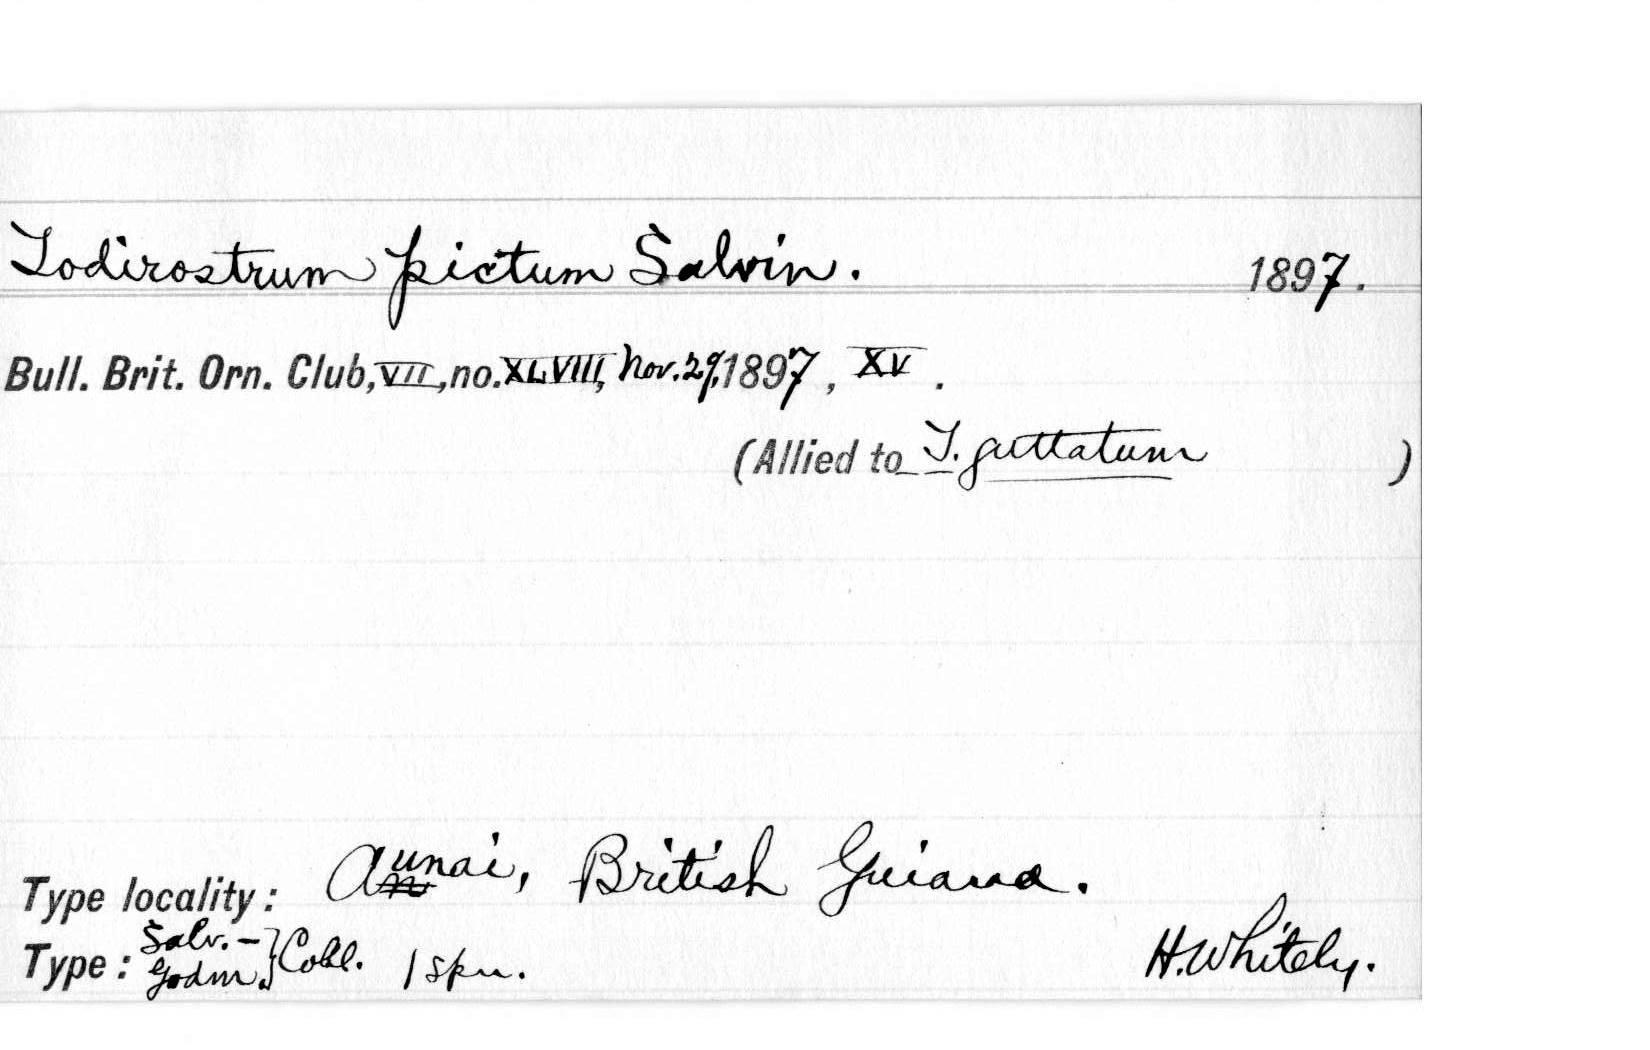 Todirostrum pictum Salvin. 1897.
Bull. Brit. Orn. Club, VII, no. XLVIII, Nov. 29, 1897, XV.
(Allied to T. guttatum )
Type locality: Aunai, British Guiana.
Type: Salv.-Godm. Coll. 1 spm. H. Whitely.